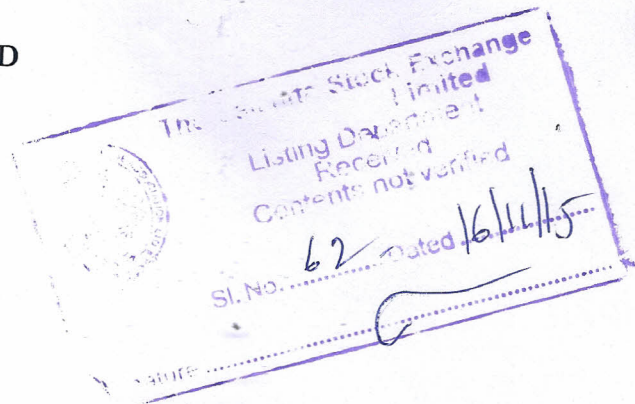 D
Stock Exchange
Limited
Listing Department
Received
Contents not verified
Sl. No. 62 Dated 16/11/15